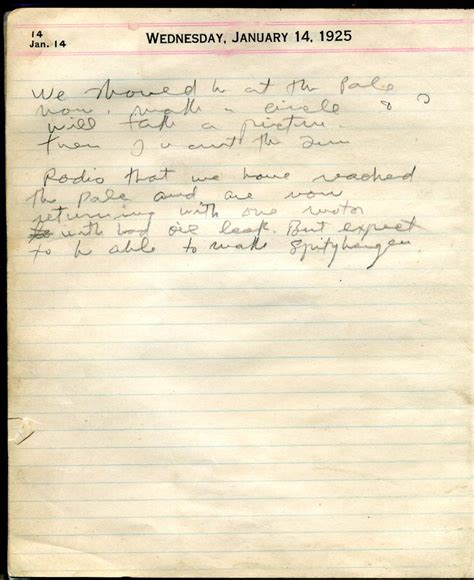 14
Jan. 14
WEDNESDAY, JANUARY 14, 1925
We should be at the Pole
now. make a circle
will take a picture.
Then I want the Sun
Radio that we have reached
the pole and are now
returning with one motor
with bad oil leak. But expect
to be able to make Spitzbergen